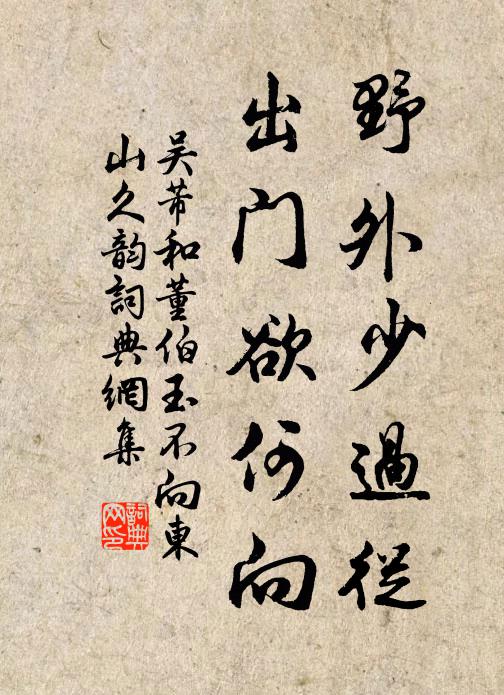 野外少過從
出門欲何向
吴芾和董伯玉不向東
山久韵詞典網集
詞典
网印